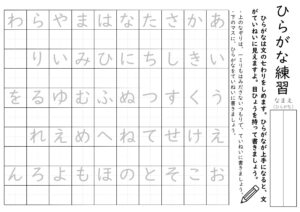 ひらがな練習
なまえ
(ひらがな)
ひらがなは文の七わりをしめます。ひらがなが上手になると、文
がていねいに見えますよ。目ひょうを持って書きましょう。
・上のなぞりは、一ミリもはみださないつもりで、ていねいに書きましょう。
・下のマスに、ひらがなをていねいに書きましょう。
あいうえお
かきくけこ
さしすせそ
たちつてと
なにぬねの
はひふへほ
まみむめも
やいゆえよ
らりるれろ
わをん